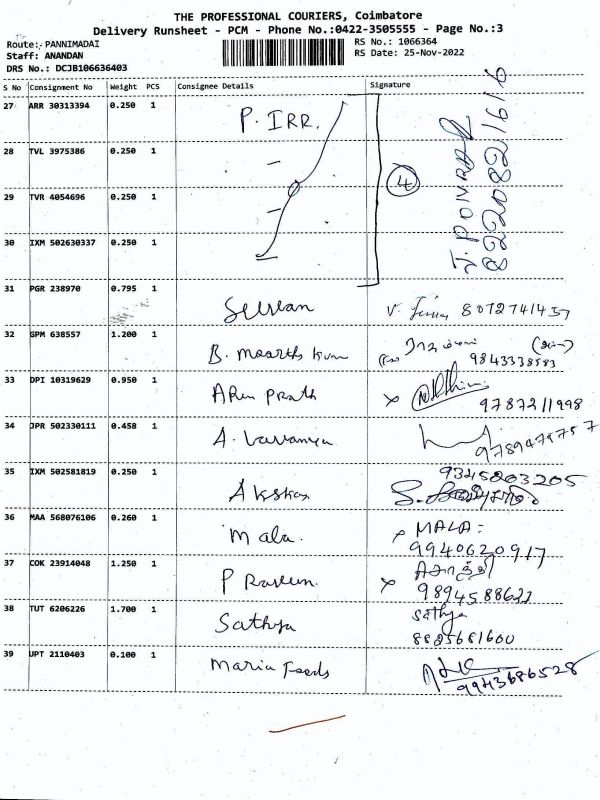 THE PROFESSIONAL COURIERS, Coimbatore
Delivery Runsheet - PCM - Phone No.:0422-3505555 - Page No.:3
Route: PANNIMADAI
RS No.: 1066364
Staff: ANANDAN
RS Date: 25-Nov-2022
DRS No.: DCJB106636403
S No Consignment No Weight PCS Consignee Details Signature
27 ARR 30313394 0.250 1 P. IRR.
28 TVL 3975386 0.250 1
29 TVR 4054696 0.250 1 4
30 IXM 502630337 0.250 1
31 PGR 238970 0.795 1 8072741437
32 GPM 638557 1.200 1 B. 9843338583
33 DPI 10319629 0.950 1 Arun Prath x 9787211998
34 JPR 502330111 0.458 1 A. Lavanya 9789479757
35 IXM 502581819 0.250 1 9345203205
36 MAA 568076106 0.260 1 Mala. x MALA:
9940620917
37 COK 23914048 1.250 1 P Raveen. x
38 TUT 6206226 1.700 1 Sathya Sathya
8885681600
39 UPT 2110403 0.100 1 Maria Feeds
9943686528